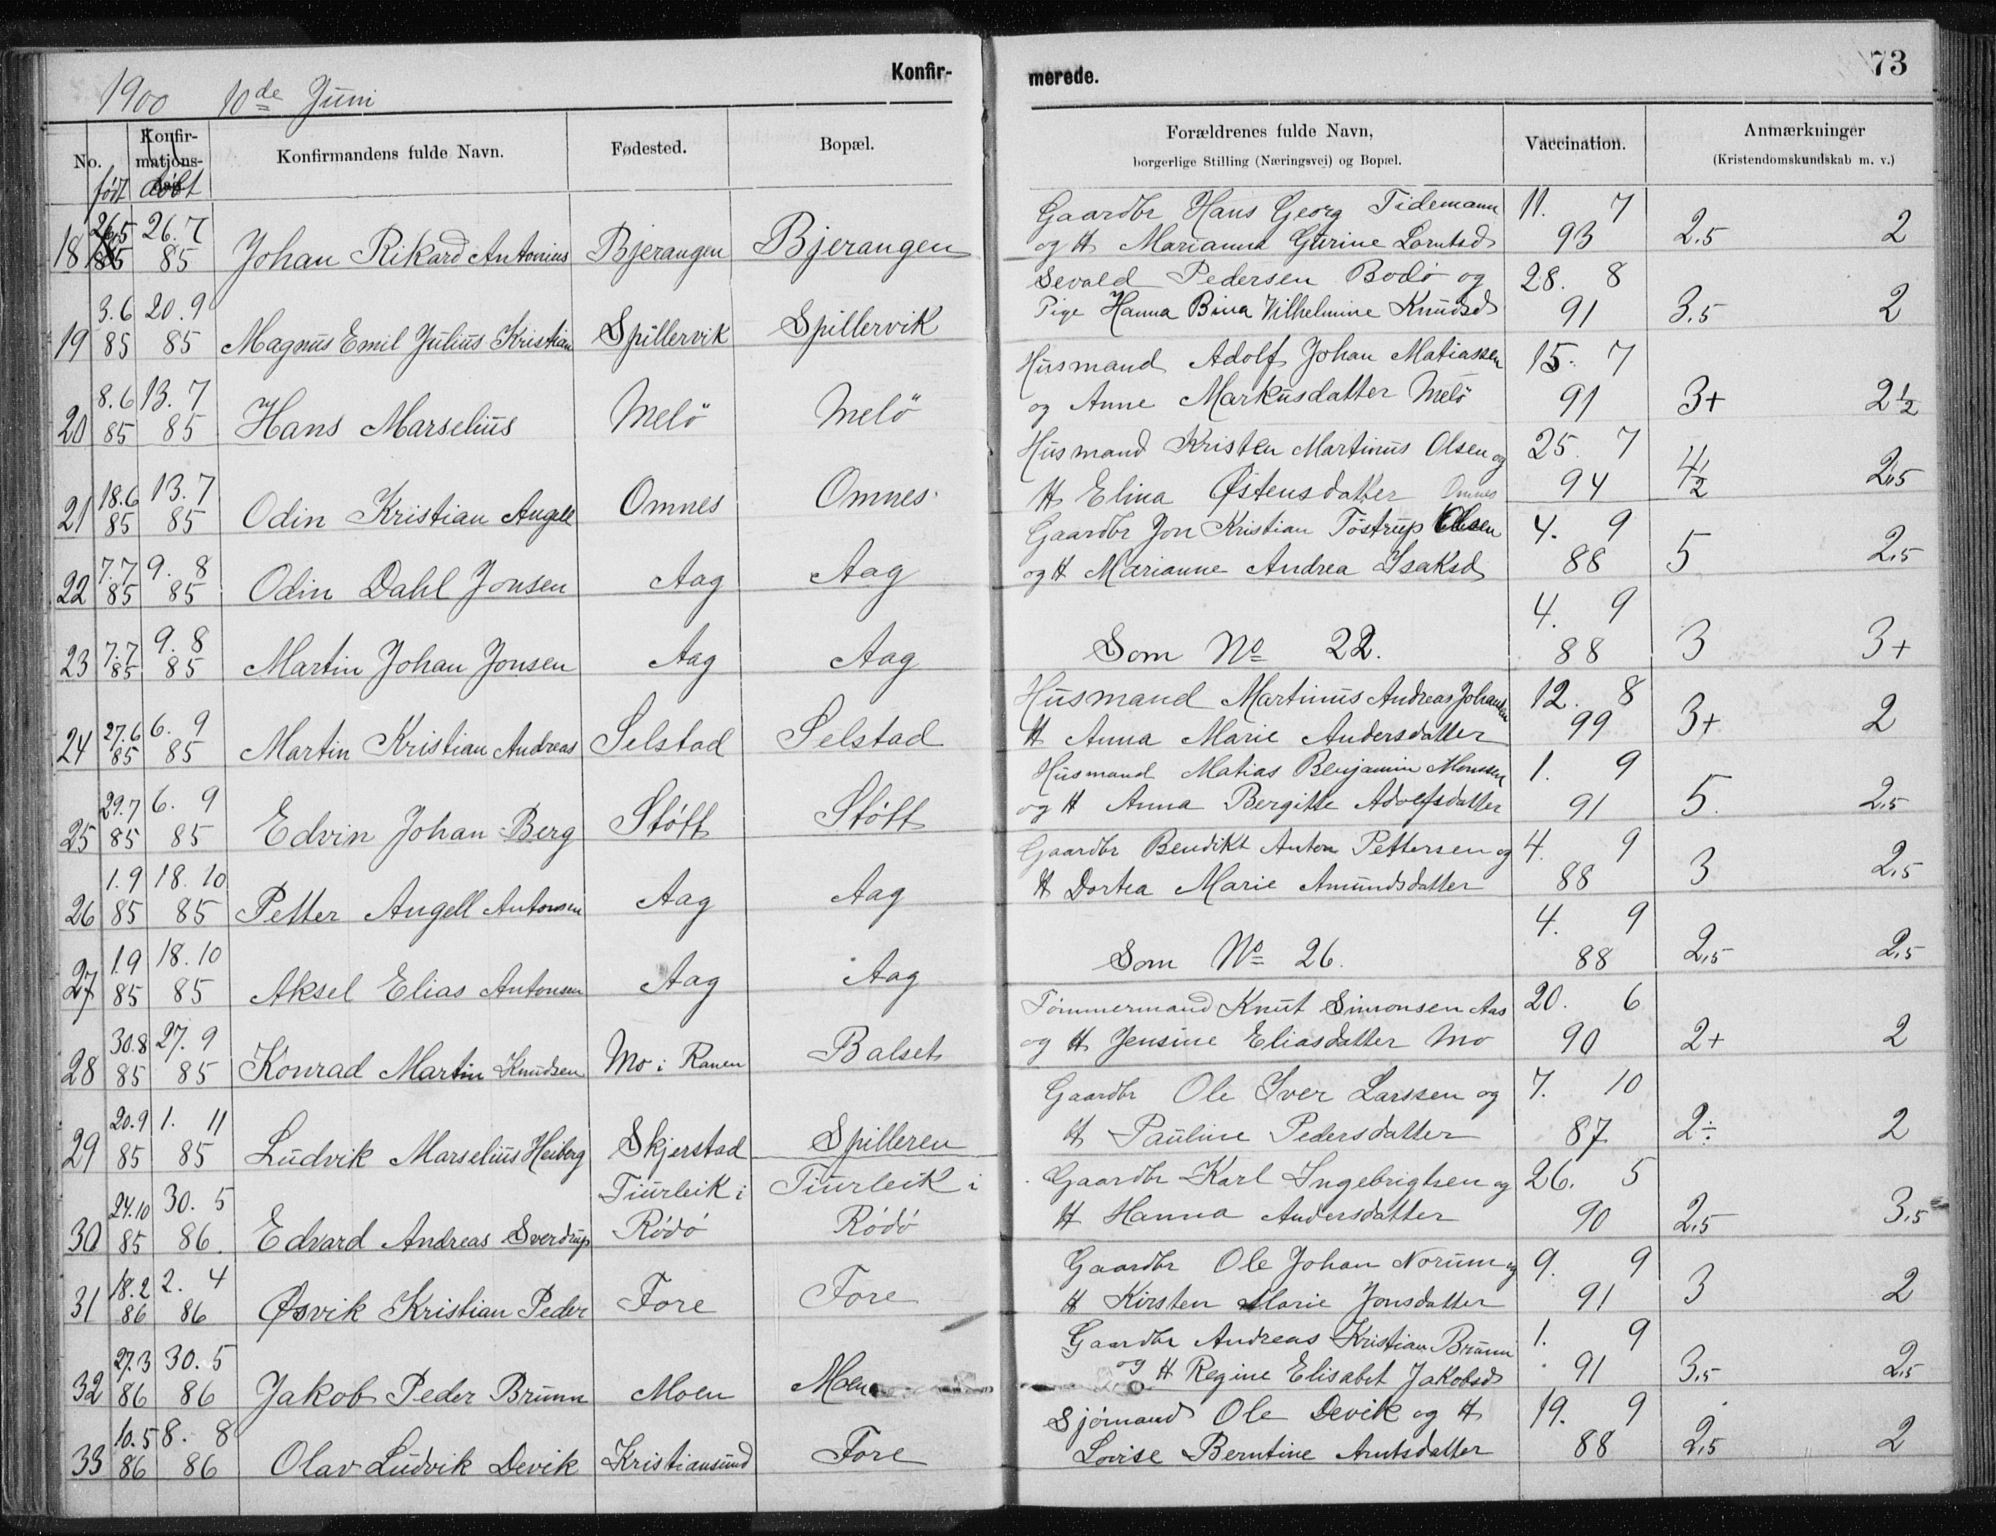 Konfir-
merede.
73
1900 10de Juni
No. født Konfir-matjons- døbt Konfirmandens fulde Navn. Fødested. Bopæl. Forældrenes fulde Navn, borgerlige Stilling (Næringsvei) og Bopæl. Vaccination. Anmærkninger (Kristendomskundskab m. v.)
18 26.5 85 26.7 85 Johan Rikard Antonius Bjerangen Bjerangen Gaardbr Hans Georg Tidemann og H Marianna Gurine Lorntsd 11. 7 93 2,5 2
19 3.6 85 20.9 85 Magnus Emil Julius Kristian Spillervik Spillervik Sevald Pedersen Bodø og Pige Hanna Bina Vilhelmine Knudsd 28. 8 91 3,5 2
20 8.6 85 13.7 85 Hans Marselius Melö Melö Husmand Adolf Johan Matiassen og Anne Markusdatter Melö 15. 7 91 3+ 2½
21 18.6 85 13.7 85 Odin Kristian Angell Omnes Omnes Husmand Kristen Martinus Olsen og H Elina Østensdatter Omnes 25. 7 94 4½ 2,5
22 7.7 85 9. 8 85 Odin Dahl Jonsen Aag Aag Gaardbr Jon Kristian Tostrup Olsen og H Marianne Andrea Isaksd 4. 9 88 5 2,5
23 7.7 85 9. 8 85 Martin Johan Jonsen Aag Aag Som No 22. 4. 9 88 3 3+
24 27.6 85 6. 9 85 Martin Kristian Andreas Selstad Selstad Husmand Martinus Andreas Johansen H Anna Marie Andersdatter 12. 8 99 3+ 2
25 29.7 85 6. 9 85 Edvin Johan Berg Støtt Støtt Husmand Matias Benjamin Monssen og H Anna Bergitte Adolfsdatter 1. 9 91 5. 2,5
26 1.9 85 18. 10 85 Petter Angell Antonsen Aag Aag Gaardbr Bendikt Anton Pettersen og H Dortea Marie Amundsdatter 4. 9 88 3 2,5
27 1.9 85 18. 10 85 Aksel Elias Antonsen Aag Aag Som No 26. 4. 9 88 2,5 2,5
28 30.8 85 27. 9 85 Konrad Martin Knudsen Mo i Ranen Balset Tømmermand Knut Simonsen Aas og H Jensine Eliasdatter Mo 20. 6 90 2+ 2
29 20.9 85 1. 11 85 Ludvik Marselius Heiberg Skjerstad Spilleren Gaardbr Ole Iver Larssen og H Pauline Pedersdatter 7. 10 87 2÷ 2
30 24.10 85 30. 5 86. Edvard Andreas Sverdrup Tiurleik i Rødø Tiurleik i Rødø Gaardbr Karl Ingebrigtsen og H Hanna Andersdatter 26. 5 90 2,5 3,5
31 18.2 86 2. 4 86 Øsvik Kristian Peder Fore Fore Gaardbr Ole Johan Norum og H Kirsten Marie Jonsdatter 9. 9 91 3 2
32 27.3 86 30. 5 86 Jakob Peder Brunn Moen Moen Gaardbr Andreas Kristian Brunn og H Regine Elisabet Jakobsd 1. 9 91 3,5 2,5
33 10.5 86 8. 8 86 Olav Ludvik Devik Kristiansund Fore Sjømand Ole Devik og H Lovise Berntine Arntsdatter 19. 9 88 2,5 2